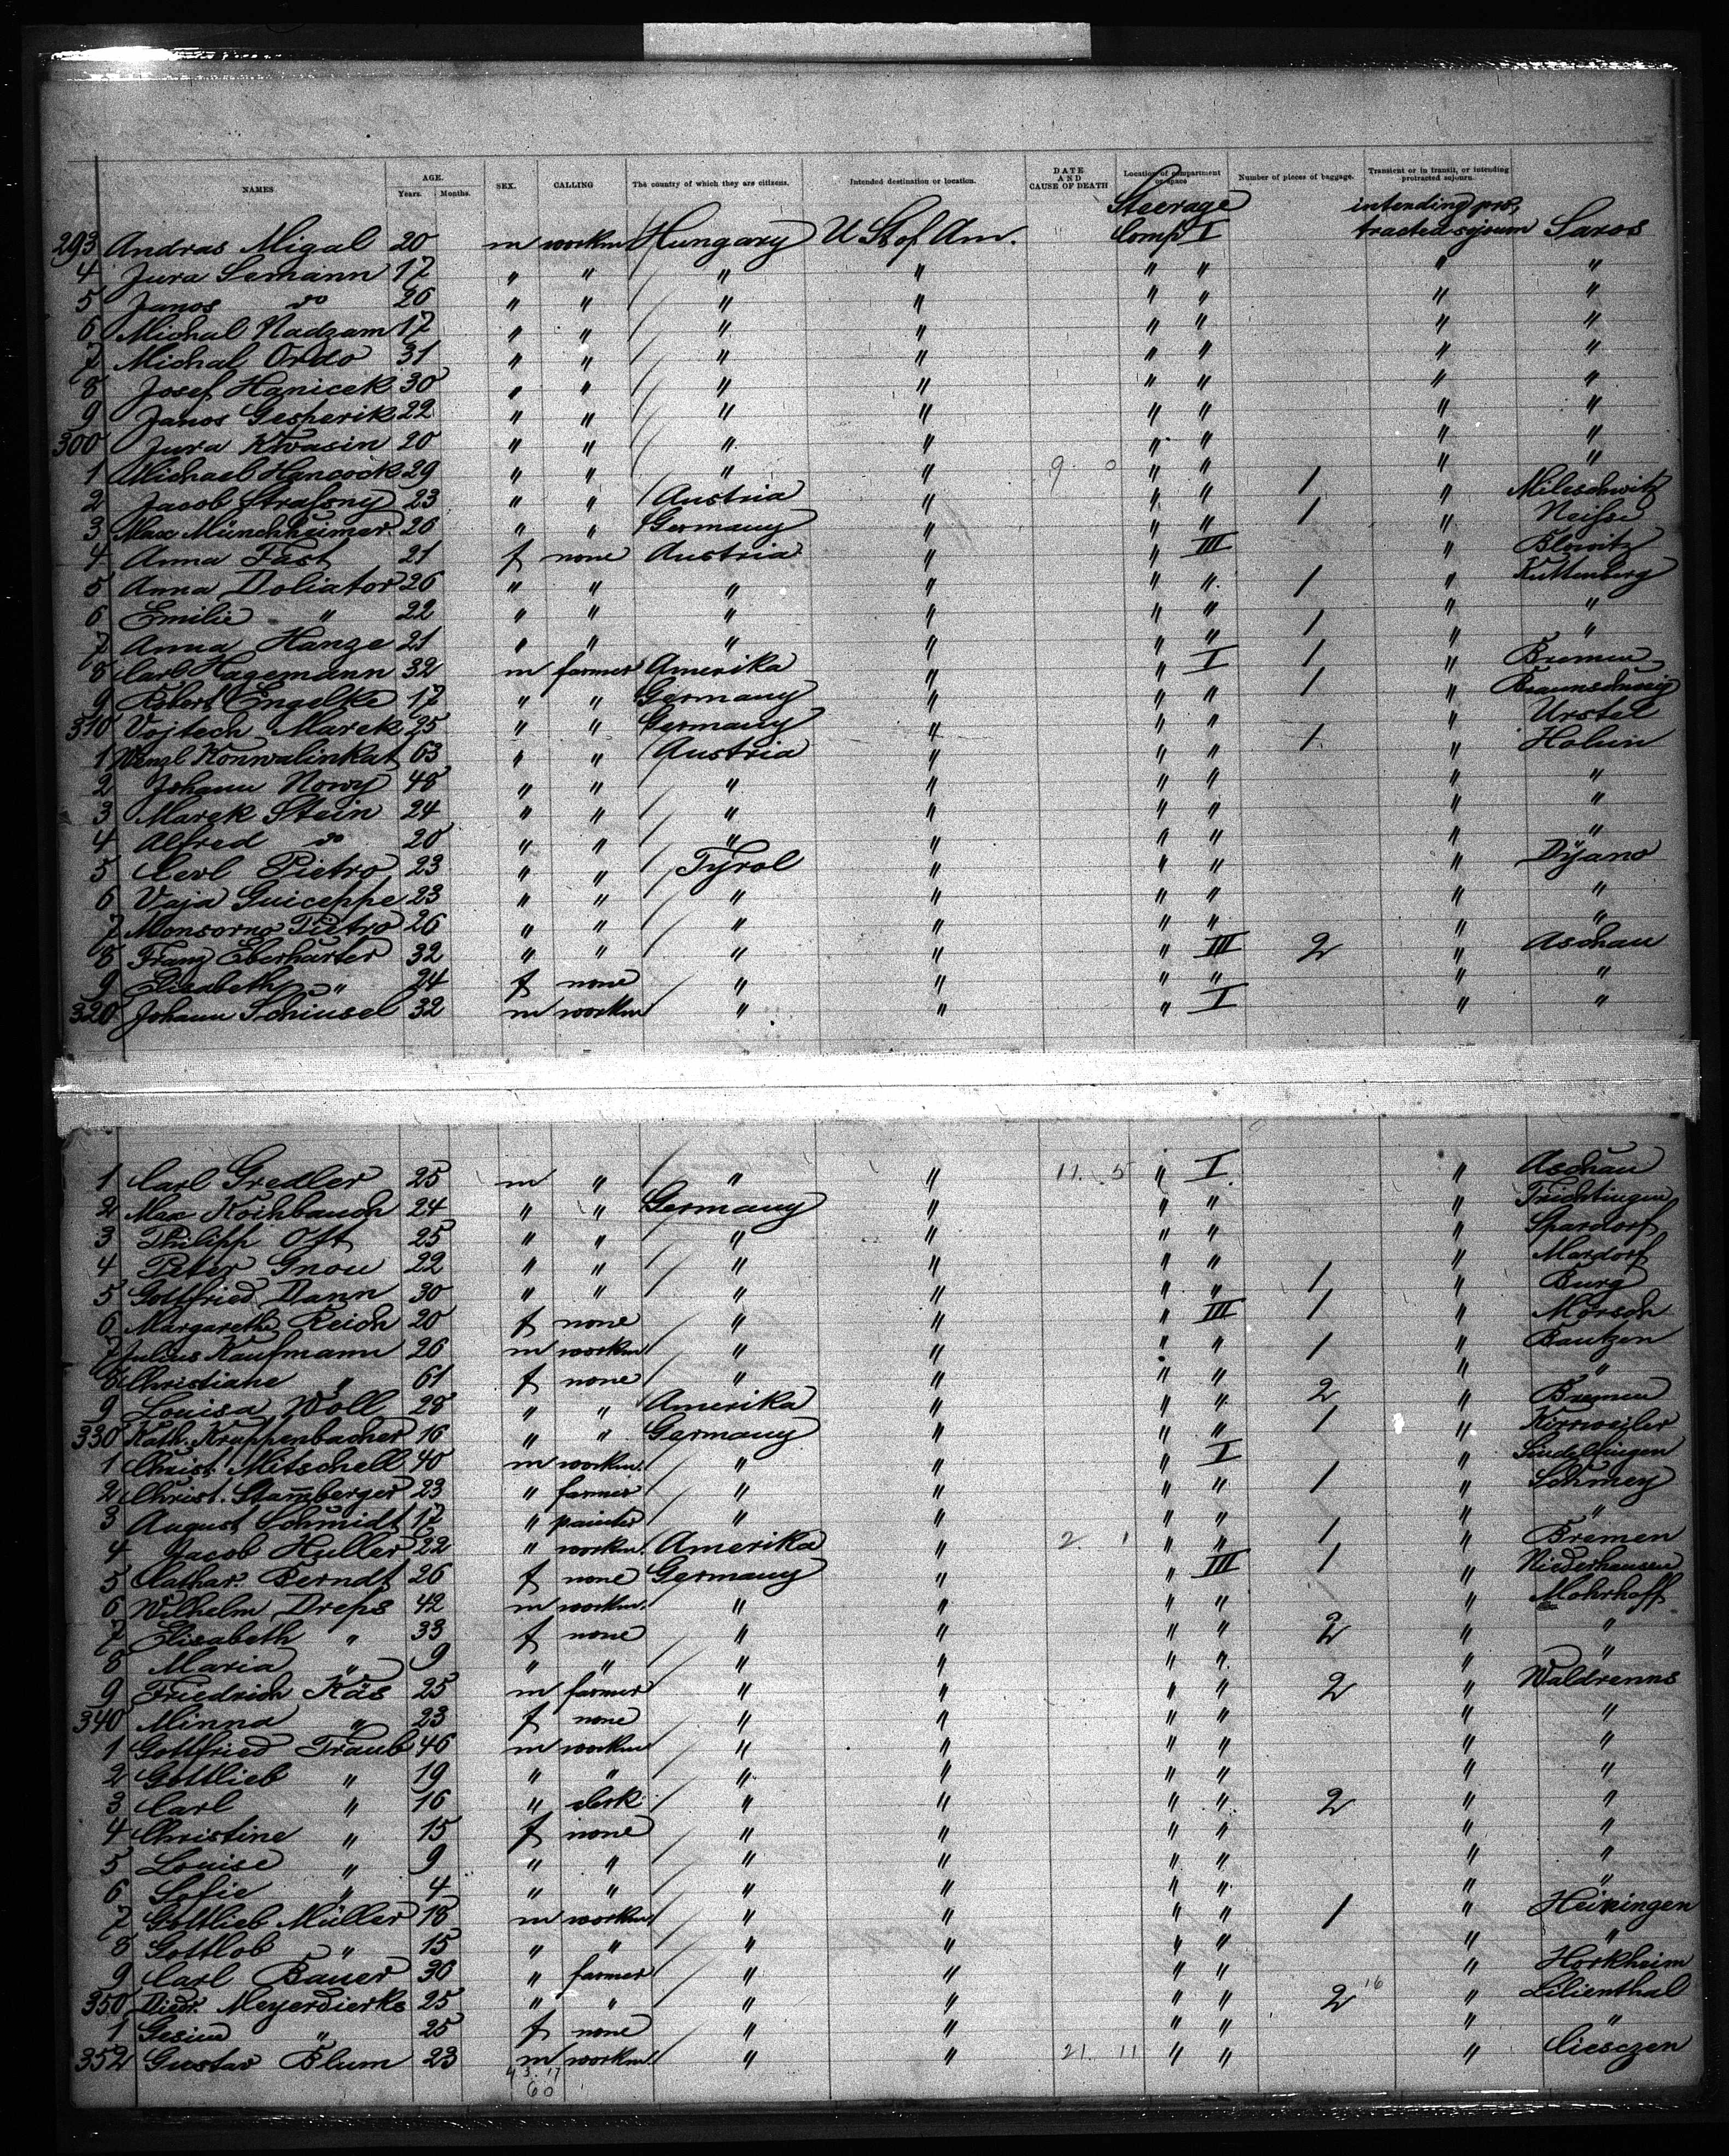 NAMES AGE. Years. Months. SEX. CALLING The country of which they are citizens. Intended destination or location. DATE AND CAUSE OF DEATH Location of compartment or space Number of pieces of baggage. Transient or in transit, or intending protracted sojourn.
Steerage intending pro,
293 Andras Migal 20 m workm Hungary U St of Am. Comp I tracted sojourn Saros
4 Jura Semann 17 " " " " " " " "
5 Janos do 26 " " " " " " " "
6 Michal Nadzam 17 " " " " " " " "
7 Michal Ordo 31 " " " " " " " "
8 Josef Hanicek 30 " " " " " " " "
9 Janos Gesperik 22 " " " " " " " "
300 Jura Kwasin 20 " " " " " " " "
1 Michael Hancock 29 " " " " 9. 0 " " " "
2 Jacob Strasony 23 " " Austria " " " 1 " Mileschwitz
3 Max Münchheimer 26 " " Germany " " " 1 " Neisse
4 Anna Fast 21 f none Austria " " III " Blowitz
5 Anna Doliator 26 " " " " " " 1 " Kuttenberg
6 Emilie " 22 " " " " " " " "
7 Anna Hanze 21 " " " " " " 1 " "
8 Carl Hagemann 32 m farmer Amerika " " I 1 " Bremen
9 Robert Engelke 17 " " Germany " " " 1 " Braunschweig
310 Vojtech Marek 25 " " Germany " " " " Urstel
1 Wenzl Konwalinkat 63 " " Austria " " " 1 " Holun
2 Johann Nowy 48 " " " " " " " "
3 Marek Stein 24 " " " " " " " "
4 Alfred do 20 " " " " " " " "
5 Cevl Pietro 23 " " Tyrol " " " " Dijano
6 Vaja Guiceppe 23 " " " " " " " "
7 Monsorno Pietro 26 " " " " " " " "
8 Franz Eberharter 32 " " " " " III 2 " Aschau
9 Elisabeth " 24 f none " " " " " "
320 Johann Schiusel 32 m workm " " " I " "
1 Carl Gredler 25 m " " " 11. 5 " I " Aschau
2 Max Kochbauch 24 " " Germany " " " " Trichtingen
3 Philipp Oft 25 " " " " " " " Spardorf
4 Peter Gnou 22 " " " " " " " Mardorf
5 Gottfried Dann 30 " " " " " " 1 " Burg
6 Margarethe Reich 20 f none " " " III 1 " Mörsch
7 Julius Kaufmann 26 m workm " " " " 1 " Bautzen
8 Christiane " 61 f none " " " " " "
9 Louisa Woll 28 " " Amerika " " " 2 " Bremen
330 Kath. Kruppenbacher 16 " " Germany " " " 1 " Kirrweiler
1 Christ. Mitschell 40 m workm. " " " I " Sindelfingen
2 Christ. Stamberger 23 " farmer " " " " 1 " Schmey
3 August Schmidt 17 " painter " " " " " "
4 Jacob Huller 22 " workm. Amerika " 2. 1 " " 1 " Bremen
5 Cathar. Berndt 26 f none Germany " " III 1 " Niederhausen
6 Wilhelm Dreps 42 m workm. " " " " " Mohrhoff
7 Elisabeth " 33 f none " " " " 2 " "
8 Maria " 9 " " " " " " " "
9 Friedrich Käs 25 m farmer " " " " 2 " Waldrenns
340 Minna " 23 f none " " " " " "
1 Gottfried Traub 46 m workm " " " " " "
2 Gottlieb " 19 " " " " " " " "
3 Carl " 16 " clerk " " " " 2 " "
4 Christine " 15 f none " " " " " "
5 Louise " 9 " " " " " " " "
6 Sofie " 4 " " " " " " " "
7 Gottlieb Müller 18 m workm " " " " 1 " Heiningen
8 Gottlob " 15 " " " " " " " "
9 Carl Bauer 30 " farmer " " " " " Horkheim
350 Diedr. Meyerdierks 25 " " " " " " 2 16 " Lilienthal
1 Gesine " 25 f none " " " " " "
352 Gustav Blum 23 m workm. " " 21. 11 " " " Ciesczen
43. 17
60